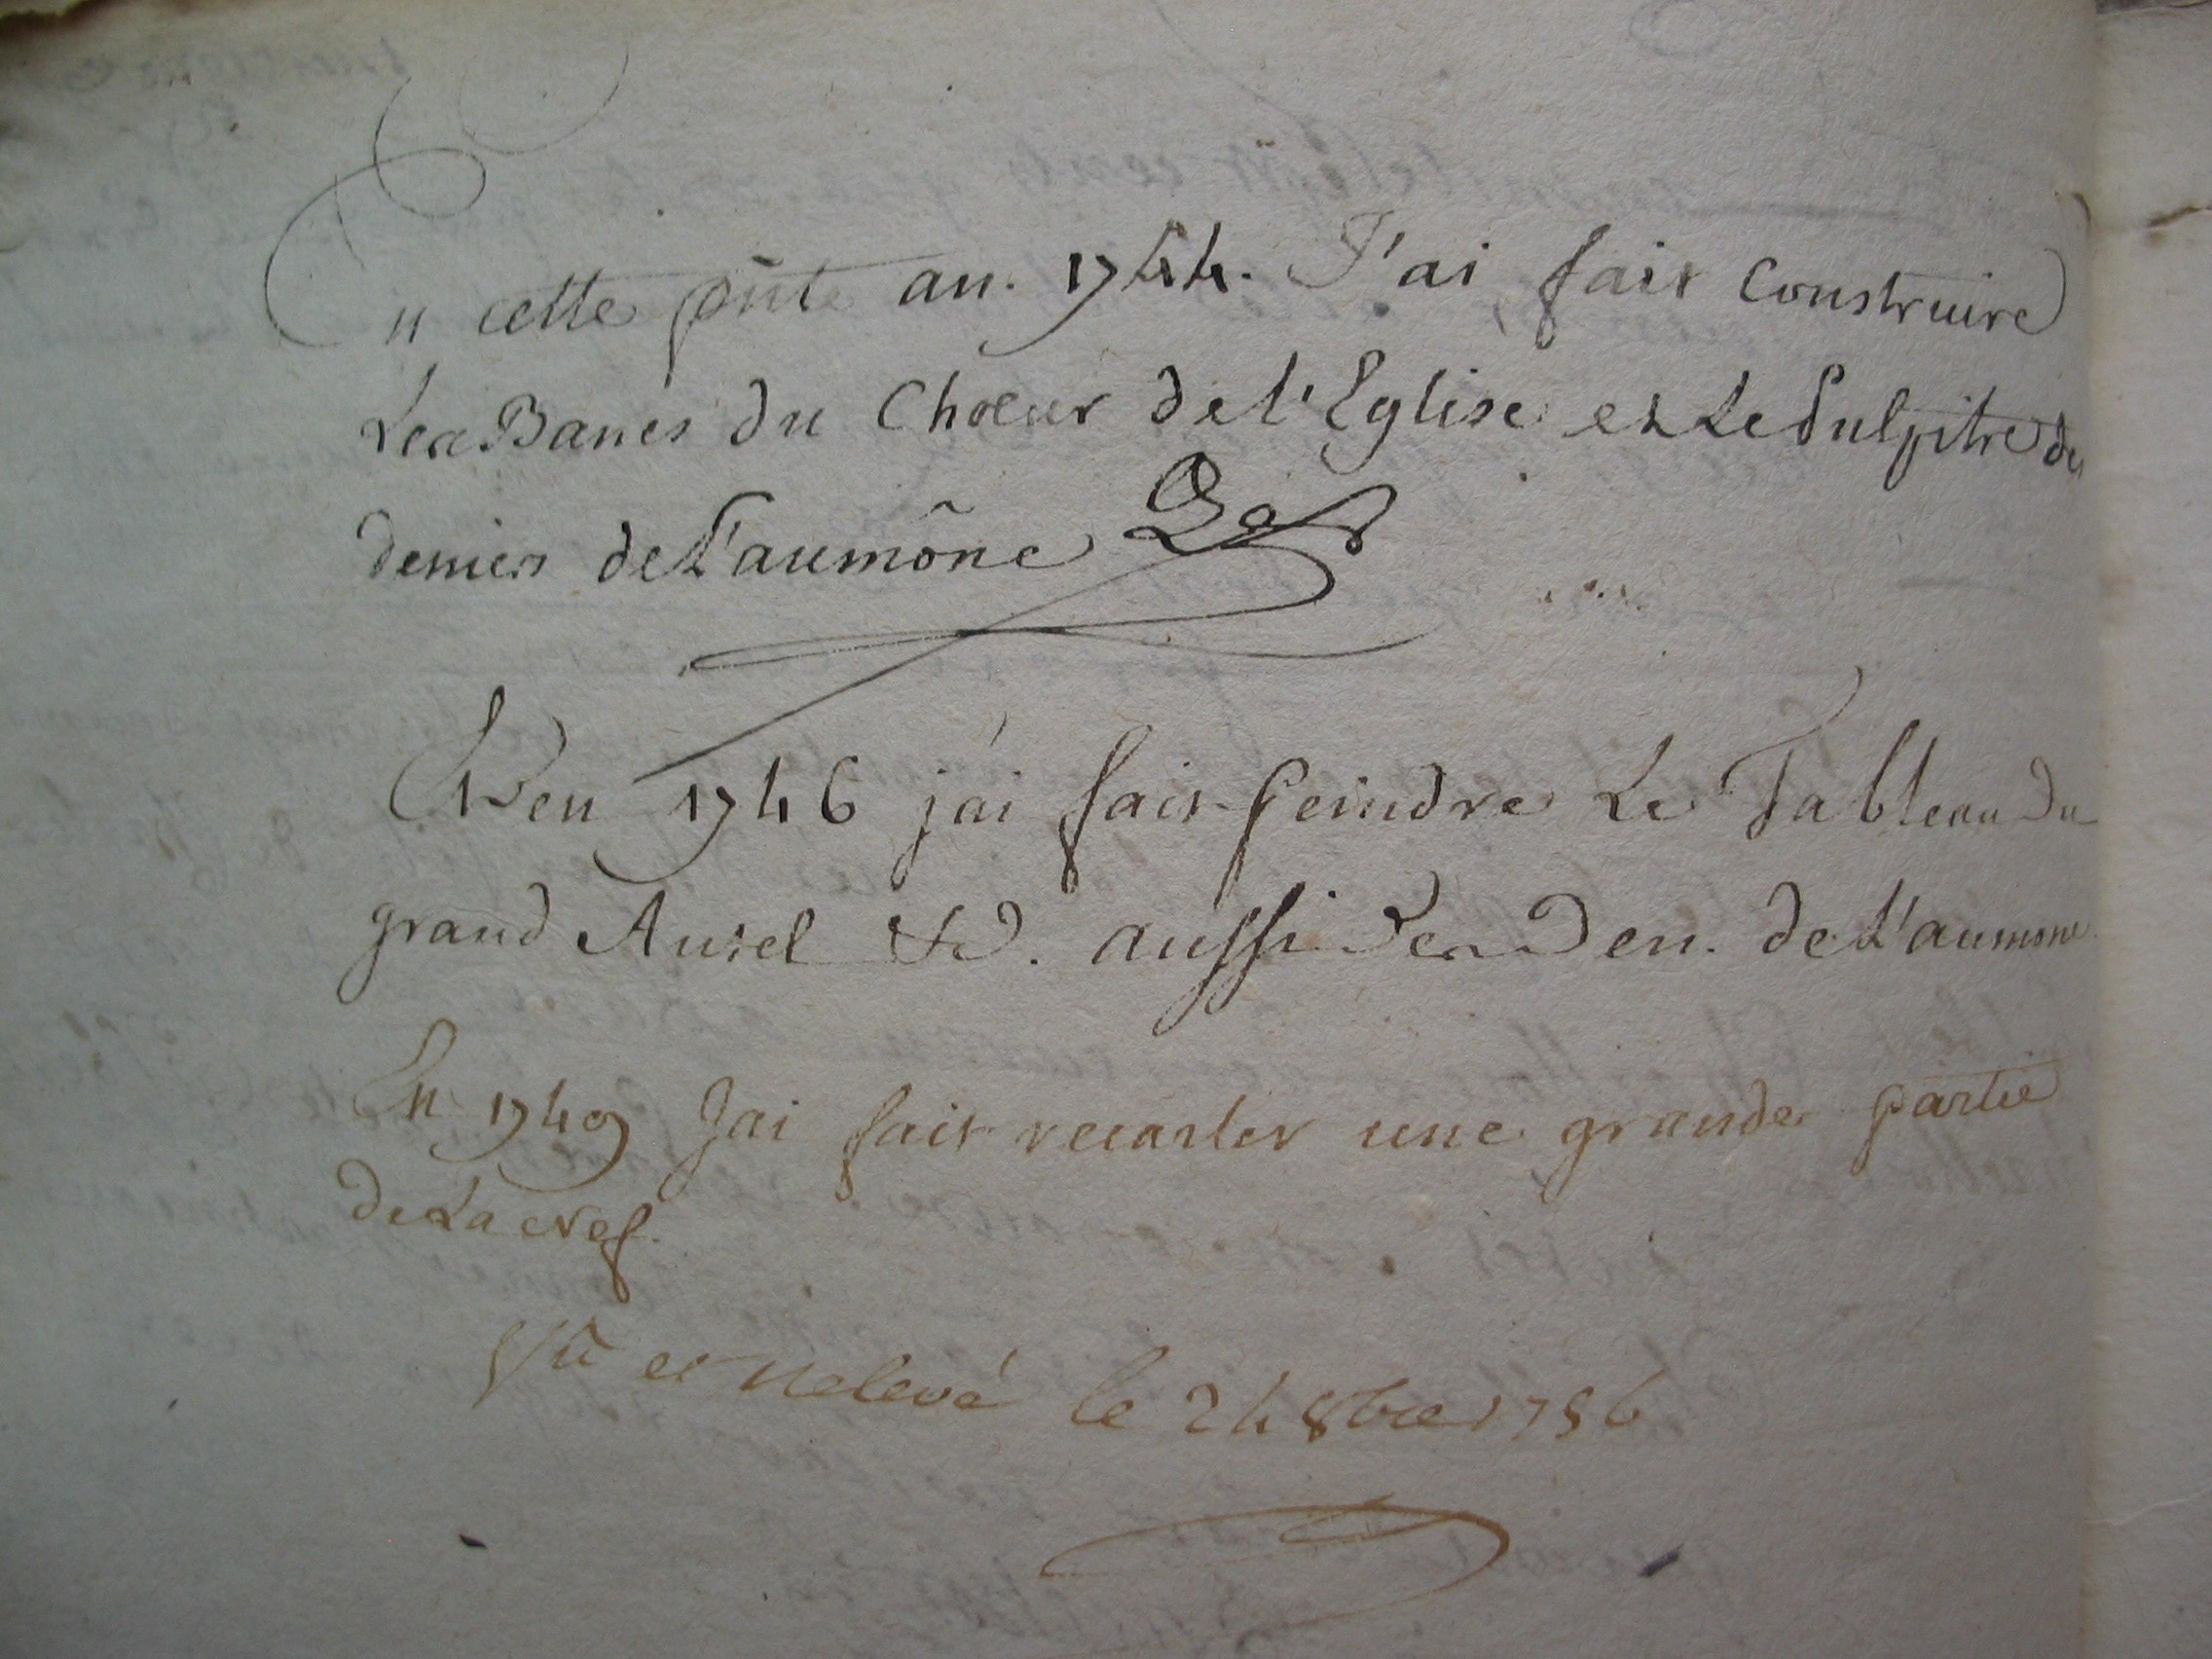 En cette pñte an. 1744. J'ai fait Construire
Les Bancs du Chœur de l'Eglise et Le Pulpitre des
deniers de L'aumône
Et en 1746 j'ai fait peindre Le Tableau du
grand Autel aussi des Den. de L'aumone
En 1749 J'ai fait recarler une grande partie
de La Nef.
Vû et Relevé le 24 8bre 1786